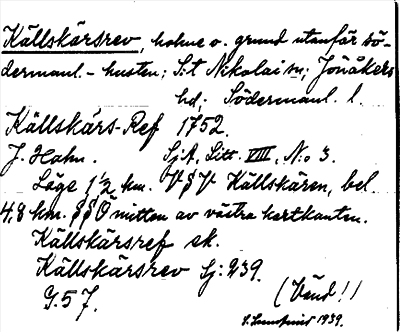 Källskärsrev, holme o. grund utanför sö-
dermanl.-kusten; S:t Nikolai sn; Jönåkers
hd; Södermanl. l.
Källskärs-Ref 1752.
J. Hahn. SjA, Litt. VIII, N:o 3.
Läge 1 1/2 km. V§V Källskären, bel.
4,8 km. §§Ö mitten av västra kartkanten.
Källskärsref ek.
Källskärsrev Sj: 239.
G. 57.
(Vänd!)
1939.